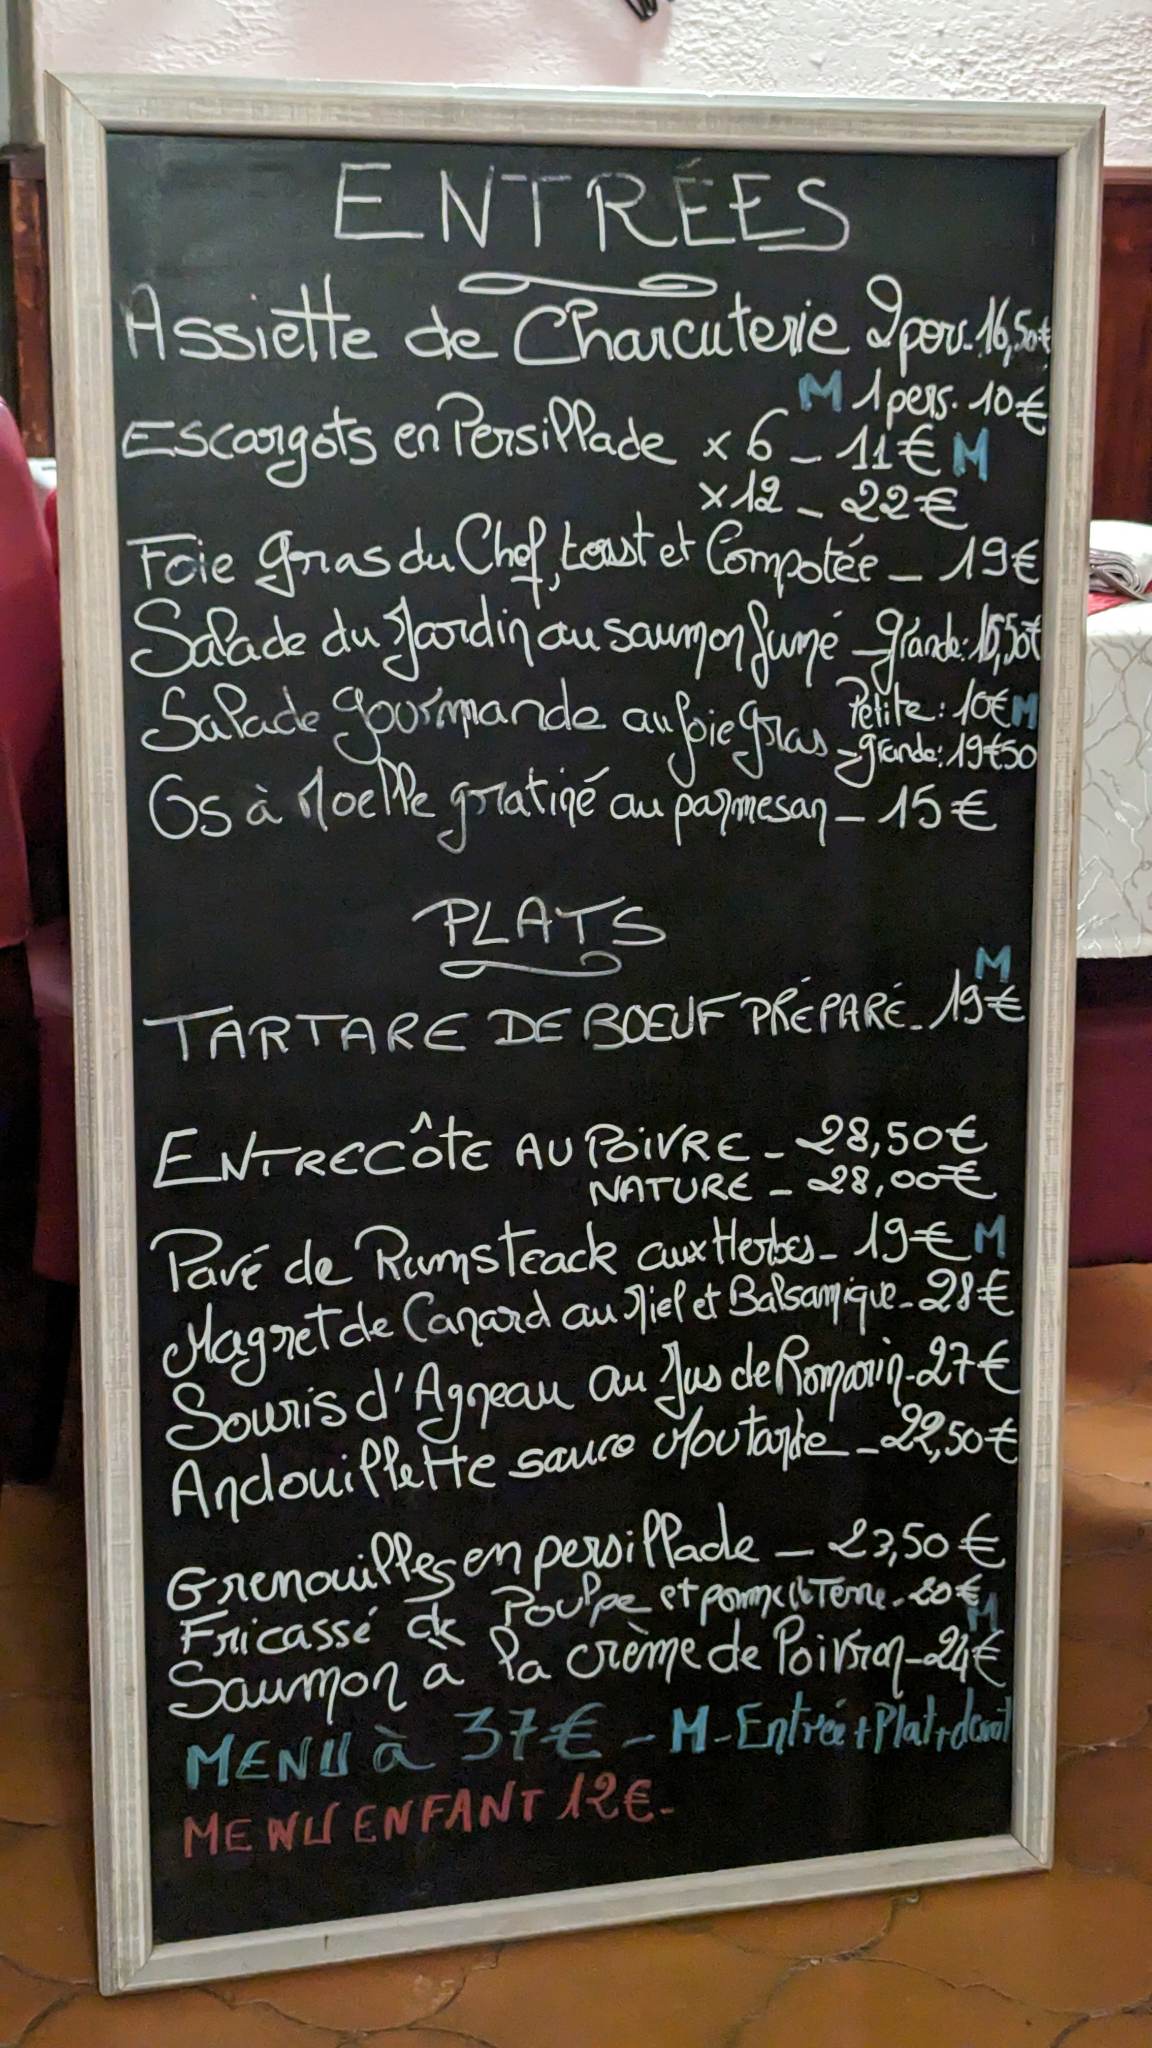 ENTRÉES
Assiette de Charcuterie 2 pers. 16,50€
M 1 pers. 10€
Escargots en Persillade x 6 - 11€ M
x12 - 22€
Foie gras du Chef, toast et Compotée - 19€
Salade du Jardin au saumon fumé - grande: 16,50€
Petite: 10€ M
Salade gourmande au foie gras - grande: 19€50
Os à Moelle gratiné au parmesan - 15€
PLATS
M
TARTARE DE BOEUF PRÉPARÉ - 19€
ENTRECÔTE AU POIVRE - 28,50€
NATURE - 28,00€
Pavé de Rumsteack aux Herbes - 19€ M
Magret de Canard au Miel et Balsamique - 28€
Souris d'Agneau au Jus de Romarin - 27€
Andouillette sauce Moutarde - 22,50€
Grenouilles en persillade - 23,50€
Fricassé de Poulpe et pomme de Terre - 20€
M
Saumon à la crème de Poivron - 24€
MENU à 37€ - M - Entrée + Plat + dessert
MENU ENFANT 12€ -